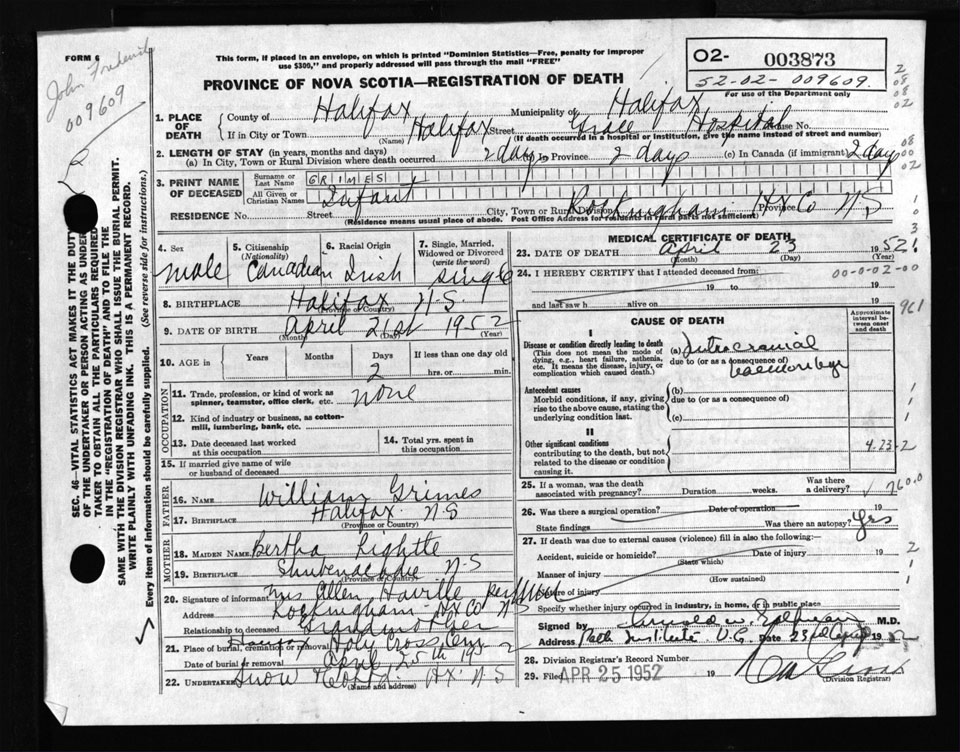 FORM 6
John Frederick
009609
This form, if placed in an envelope, on which is printed "Dominion Statistics—Free, penalty for improper
use $300," and properly addressed will pass through the mail "FREE"
PROVINCE OF NOVA SCOTIA—REGISTRATION OF DEATH
02- 003873
52-02- 009609.
For use of the Department only
SEC. 46—VITAL STATISTICS ACT MAKES IT THE DUTY
OF THE UNDERTAKER OR PERSON ACTING AS UNDER-
TAKER TO OBTAIN ALL THE PARTICULARS REQUIRED
IN THE "REGISTRATION OF DEATH" AND TO FILE THE
SAME WITH THE DIVISION REGISTRAR WHO SHALL ISSUE THE BURIAL PERMIT.
WRITE PLAINLY WITH UNFADING INK. THIS IS A PERMANENT RECORD.
Every item of information should be carefully supplied. (See reverse side for instructions.)
1. PLACE OF DEATH
County of Halifax Municipality of Halifax
If in City or Town Halifax Street Grace Hospital House No.
(Name) (If death occurred in a hospital or institution, give the name instead of street and number)
2. LENGTH OF STAY (in years, months and days)
(a) In City, Town or Rural Division where death occurred 2 days In Province 2 days (c) In Canada (if immigrant) 2 days
3. PRINT NAME OF DECEASED
Surname or Last Name GRIMES
All Given or Christian Names Infant
RESIDENCE No. Street City, Town or Rural Division Rockingham Hx Co Province N S
(Residence means usual place of abode. Post Office Address for residences in rural parts not sufficient)
4. Sex
male
5. Citizenship (Nationality)
Canadian
6. Racial Origin
Irish
7. Single, Married, Widowed or Divorced (write the word)
single
8. BIRTHPLACE Halifax N.S.
(Province or Country)
9. DATE OF BIRTH April 21st 1952
(Month) (Day) (Year)
10. AGE in Years Months Days If less than one day old
2 hrs. or min.
OCCUPATION
11. Trade, profession, or kind of work as
spinner, teamster, office clerk, etc. none
12. Kind of industry or business, as cotton-
mill, lumbering, bank, etc.
13. Date deceased last worked
at this occupation
14. Total yrs. spent in
this occupation
15. If married give name of wife
or husband of deceased
FATHER
16. NAME William Grimes
17. BIRTHPLACE Halifax N S
(Province or Country)
MOTHER
18. MAIDEN NAME Bertha Lightle
19. BIRTHPLACE Shubenacadie N-S
(Province or Country)
20. Signature of informant Mrs Allen
Address Rockingham Hx Co N S
Relationship to deceased Grandmother
21. Place of burial, cremation or removal Holy Cross Cem
Date of burial or removal April 25th 1952
22. Undertaker Snow & Co Hx. N.S
(Name and address)
MEDICAL CERTIFICATE OF DEATH
23. DATE OF DEATH April 23 1952
(Month) (Day) (Year)
24. I HEREBY CERTIFY that I attended deceased from:
00-0-02-00
19 to 19
and last saw h alive on 19
CAUSE OF DEATH
Approximate interval between onset and death
961
I
Disease or condition directly leading to death
(This does not mean the mode of
dying, e.g., heart failure, asthenia,
etc. It means the disease, injury, or
complication which caused death.)
(a) Intracranial
due to (or as a consequence of)
haemorrhage
Antecedent causes
Morbid conditions, if any, giving
rise to the above cause, stating the
underlying condition last.
(b)
due to (or as a consequence of)
(c)
II
Other significant conditions
contributing to the death, but not
related to the disease or condition
causing it.
4-23-2
25. If a woman, was the death
associated with pregnancy? Duration weeks. Was there a delivery?
760.0
26. Was there a surgical operation? Date of operation 19
State findings Was there an autopsy? Yes
27. If death was due to external causes (violence) fill in also the following:
Accident, suicide or homicide? Date of injury 19
(State which)
Manner of injury
(How sustained)
Nature of injury
Specify whether injury occurred in industry, in home, or in public place
Signed by M.D.
Address Path Institute V.G. Date 23 April 1952
28. Division Registrar's Record Number
29. Filed APR 25 1952 19
(Division Registrar)